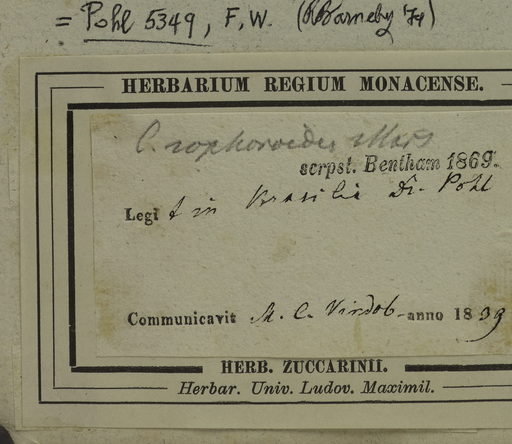 = Pohl 5349, F.W. (RBarneby '79)
HERBARIUM REGIUM MONACENSE.
C. zophoroides Mart
scrpst. Bentham 1869.
Legit in Brasilia Dr. Pohl
Communicavit M. C. Vindob. anno 1839
HERB. ZUCCARINII.
Herbar. Univ. Ludov. Maximil.